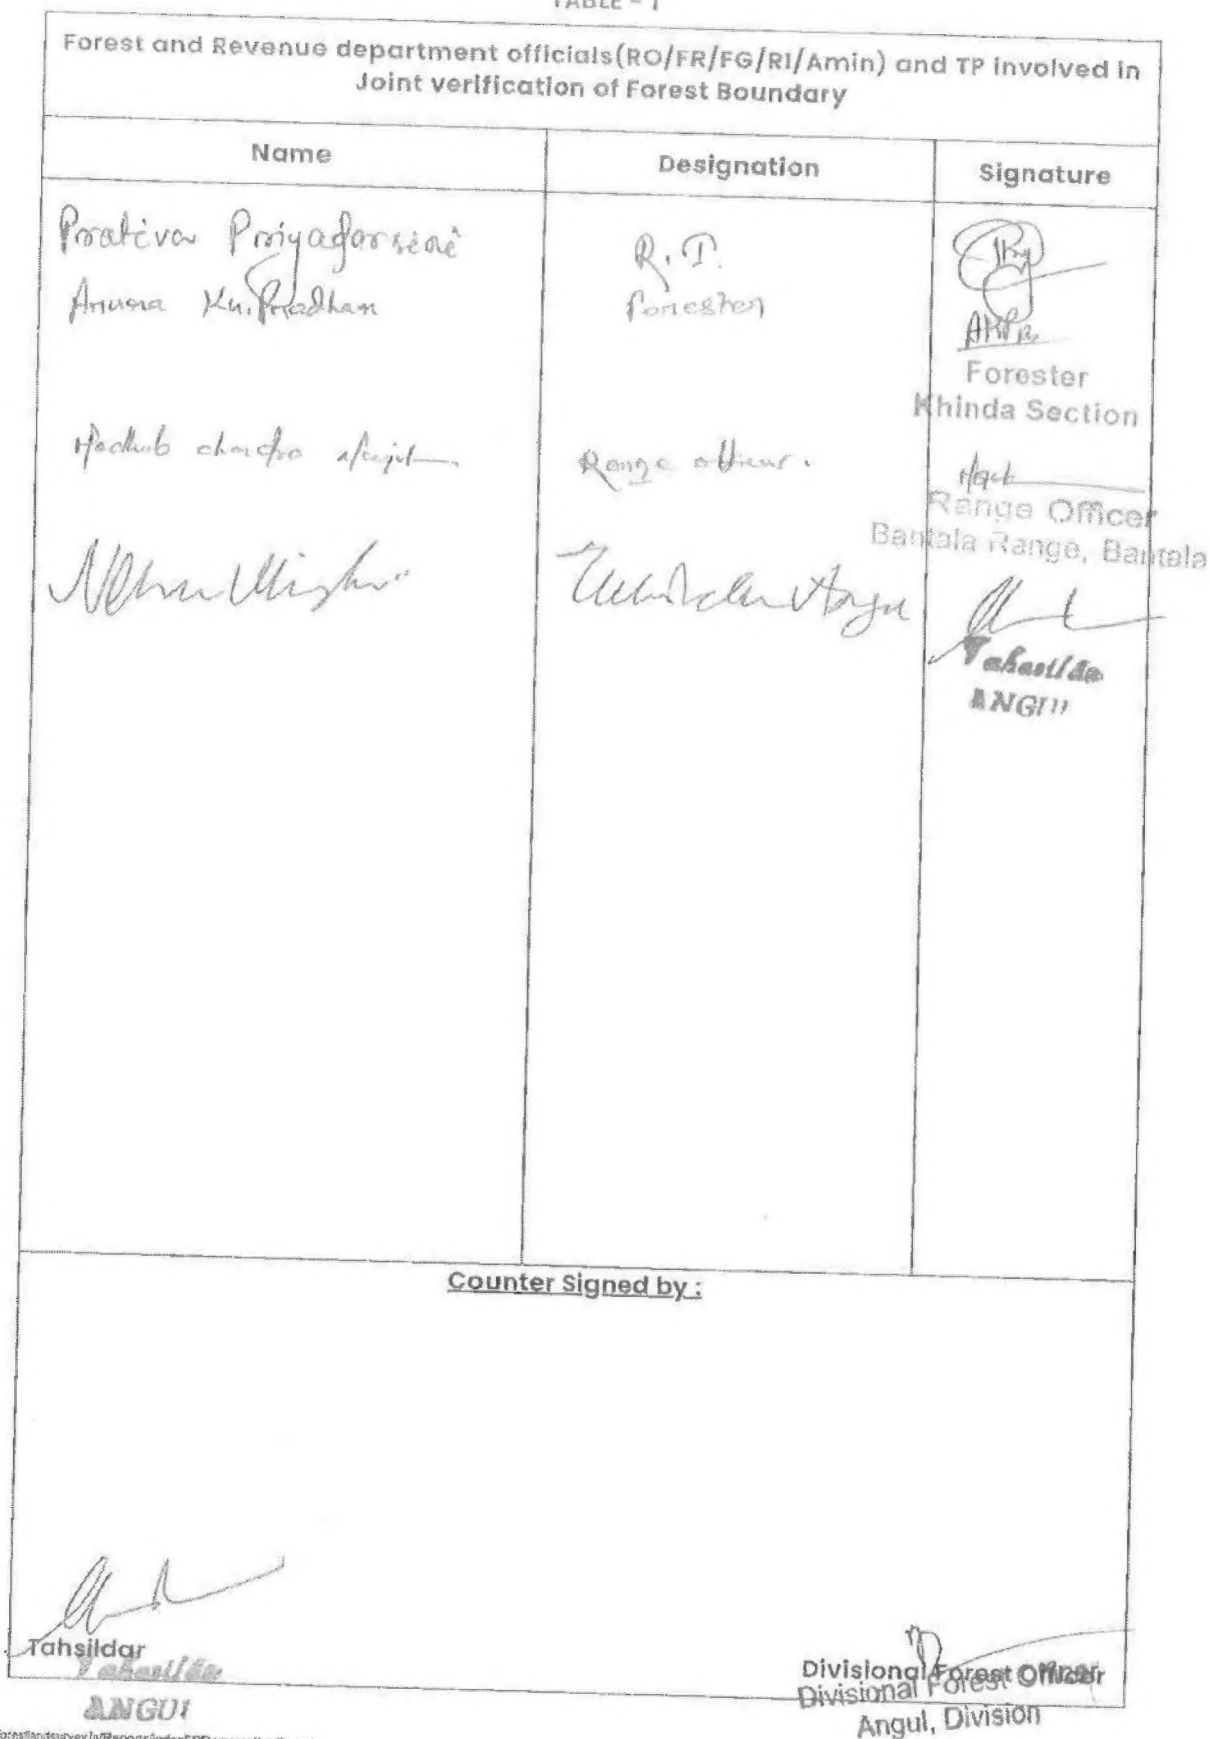 TABLE - 1
Forest and Revenue department officials(RO/FR/FG/RI/Amin) and TP involved in
Joint verification of Forest Boundary
Name Designation Signature
Prativa Priyadarsini R.I.
Aruna Ku. Pradhan Forester
AKPR
Forester
Khinda Section
Madhab chandra Range officer.
Range Officer
Bantala Range, Bantala
Tahasilda
ANGU
Counter Signed by :
Tahsildar
Tahasilda
ANGU
Divisional Forest Officer
Divisional Forest Officer
Angul, Division